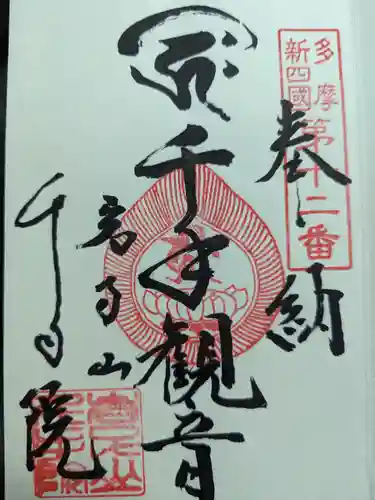 奉納
多摩
新四國第十二番
千手観音
岩子山
千手院